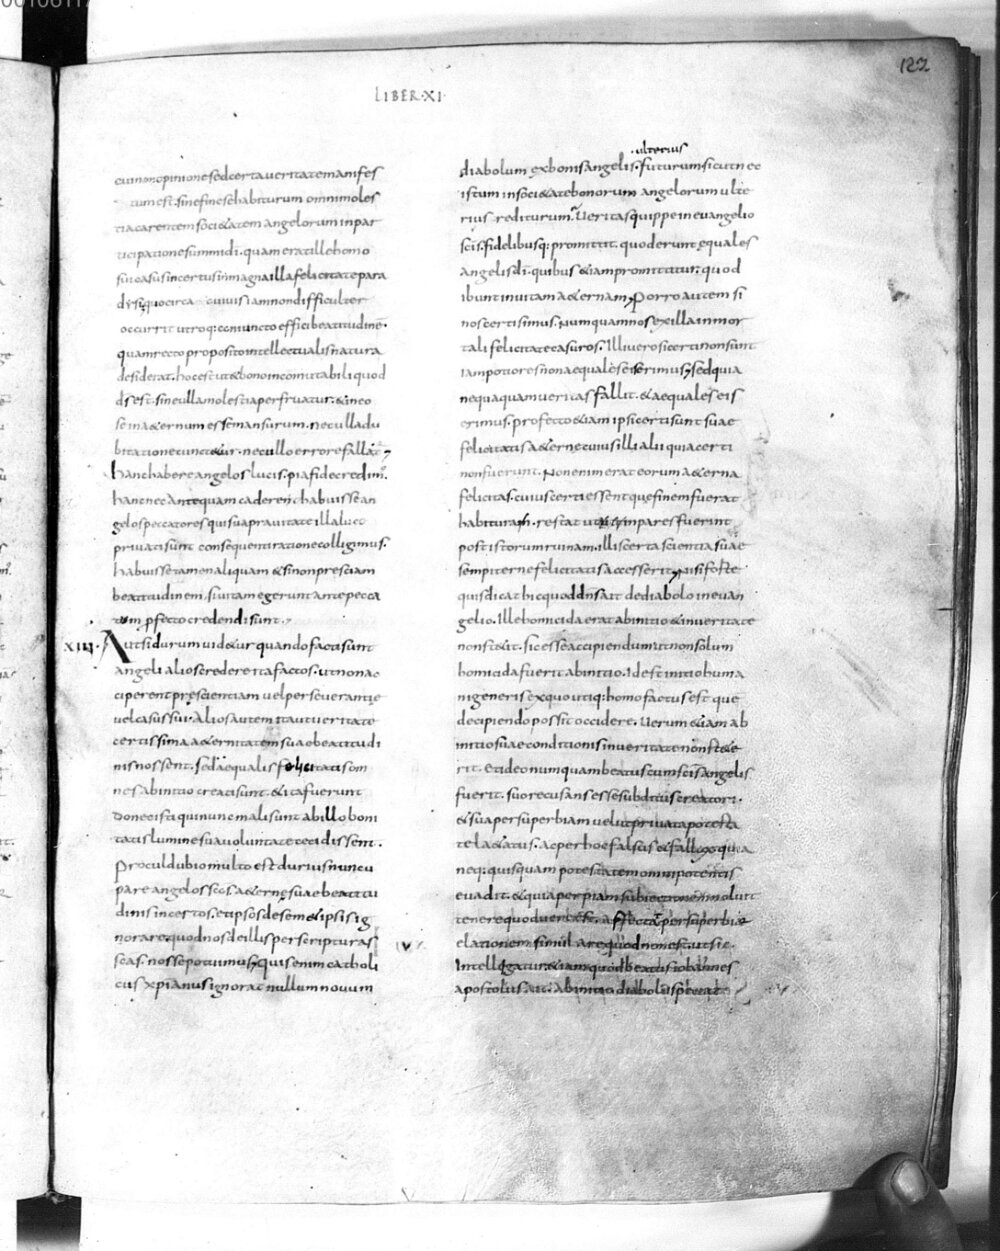 LIBER·XI·
122
cui non opinione sed certa ueritate manifes
tum est. sine fine se habiturum omni moles
tia carentem societatem angelorum inpar
ticipatione summi dī. quam erat ille homo
sui casus incertus in magna illa felicitate para
disi quocirca cuiuis iam non difficulter
occurrit utroq; coniuncto effici beatitudinē.
quam recto proposito intellectualis natura
desiderat. hoc est ut & bono incommutabili quod
ds est. sine ulla molestia perfruatur. & in eo
se in aeternum esse mansurum. nec ulla du
bitatione cunctetur. nec ullo errore fallatur
hanc habere angelos lucis. pia fide credimꝰ.
hanc nec antequam caderent habuisse an
gelos peccatores qui sua prauitate illa luce
priuati sunt consequenti ratione colligimus.
habuisse tamen aliquam & si non presciam
beatitudinem. si uitam egerunt ante pecca
tum p̄fecto credendi sunt.
XIII. Aut si durum uidetur quando facti sunt
angeli alios credere ita factos. ut non ac
ciperent prescientiam uel perseuerantie
uel casus sui. alios autem ita ut ueritate
certissima aeternitatem suae beatitudi
nis nossent. sed aequalis felicitatis om
nes ab initio creati sunt. & ita fuerunt
donec isti qui nunc mali sunt ab illo boni
tatis lumine sua uoluntate cecidissent.
Procul dubio multo est durius nunc u
pare angelos scōs. aeternę suae beatitu
dinis incertos. et ipsos de semet ipsis ig
norare quod nos de illis per scripturas
scas. nosse potuimus. quis enim catholi
cus xpianus ignorat nullum nouum
·ulterius
diabolum ex bonis angelis. futurum sicut nec
istum in societate bonorum angelorum ulte
rius rediturum. Ueritas quippe in euangelio
scīs. fidelibusq; promittit. quod erunt equales
angelis dī. quibus & iam promittitur. quod
ibunt in uitam aeternam. Porro autem si
nos certi sumus. Numquam nos ex illa inmor
tali felicitate casuros. Illi uero si certi non sunt
iam potiores non aequales eis erimus. sed quia
nequaquam ueritas fallit. & aequales eis
erimus. profecto & iam ipsi certi sunt suae
felicitatis aeterne cuius illi alii quia certi
non fuerunt. Non enim erat eorum aeterna
felicitas. cuius certi essent quę finem fuerat
habitura. restat ut inpares fuerint
post istorum ruinam. illis certa scientia suae
sempiterne felicitatis accesserit. Nisi forte
quis dicat hic quod dns ait de diabolo in euan
gelio. Ille homicida erat ab initio & in ueritate
non stetit. sic esse accipiendum ut non solum
homicida fuerit ab initio. Id est initio huma
ni generis ex quo utiq; homo factus est que
decipiendo possit occidere. Uerum etiam ab
initio suae conditionis in ueritate non stete
rit. et ideo numquam beatus cum scīs angelis
fuerit. suo recusans esse subditus creatori.
& sua per superbiam uelut priuata potesta
te laetatus. ac per hoc falsis & fallax quia
neq; quisquam potestatem omnipotentis
euadit. & qui a per piam subiectionem noluit
tenere quod uere est. affectat per superbie
elationem simulare quod non est. ut sic
Intellegatur & iam quod beatus iohannes
apostolus ait. ab initio diabolus peccat